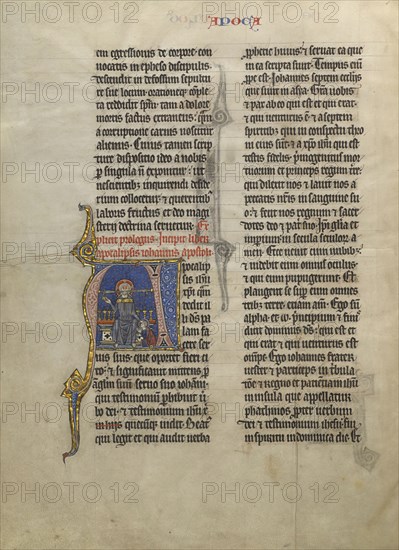 APOCA
em egressurus de corpore con
uocatis in epheso discipulis
descendit in defossum sepultu
re sue locum oratione comple
ta reddidit spm tam a dolore
mortis factus extraneus
a corruptione carnis noscitur
alienus. Cuius tamen scriptu
re dispositio ideo a nobis
per singula n exponitur ut
nescientibus inquirendi deside
rium collocetur et querentibus
laboris fructus et deo magis
terii doctrina seruetur. Ex
plicit prologus. Incipit liber
apocalipsis iohannis apostoli
Apocalipsis
ihu
xpi
dedit illi
ds pa
lam fa
cere ser
uis suis que oportet fieri ci
to et significauit mittens
angelum suum seruo suo iohanni
qui testimonium perhibuit
bo dei et testimonium ihu
in hiis quecumque uidit. Beatus
qui legit et qui audit uerba
prophetie huius et seruat ea que
in ea scripta sunt. Tempus enim
prope est. Iohannes septem ecclesiis
que sunt in asia. Gra uobis
et pax ab eo qui est et qui erat
et qui uenturus est et a septem
spiritibus qui in conspectu throni
eius sunt et a xpo ihu qui est
testis fidelis primogenitus mor
tuorum et princeps regum terre
qui dilexit nos et lauit nos a
peccatis nostris in sanguine su
o et fecit nos regnum et sacer
dotes deo et patri suo. Ipsi gloria et
imperium in secula seculorum amen
Ecce uenit cum nubibus
et uidebit eum omnis oculus
et qui eum pupugerunt. Et
plangent se super eum omnes
tribus terre etiam am. Ego sum
alpha et o principium et finis
dicit dominus ds qui est et
qui erat et qui uenturus est
omps. Ego iohannes frater
uester et particeps in tribula
tione et regno et patientia in ihu
fui in insula que appellatur
pathmos propter uerbum
dei et testimonium ihesu fui
in spiritu in dominica die Et
PHOTO 12